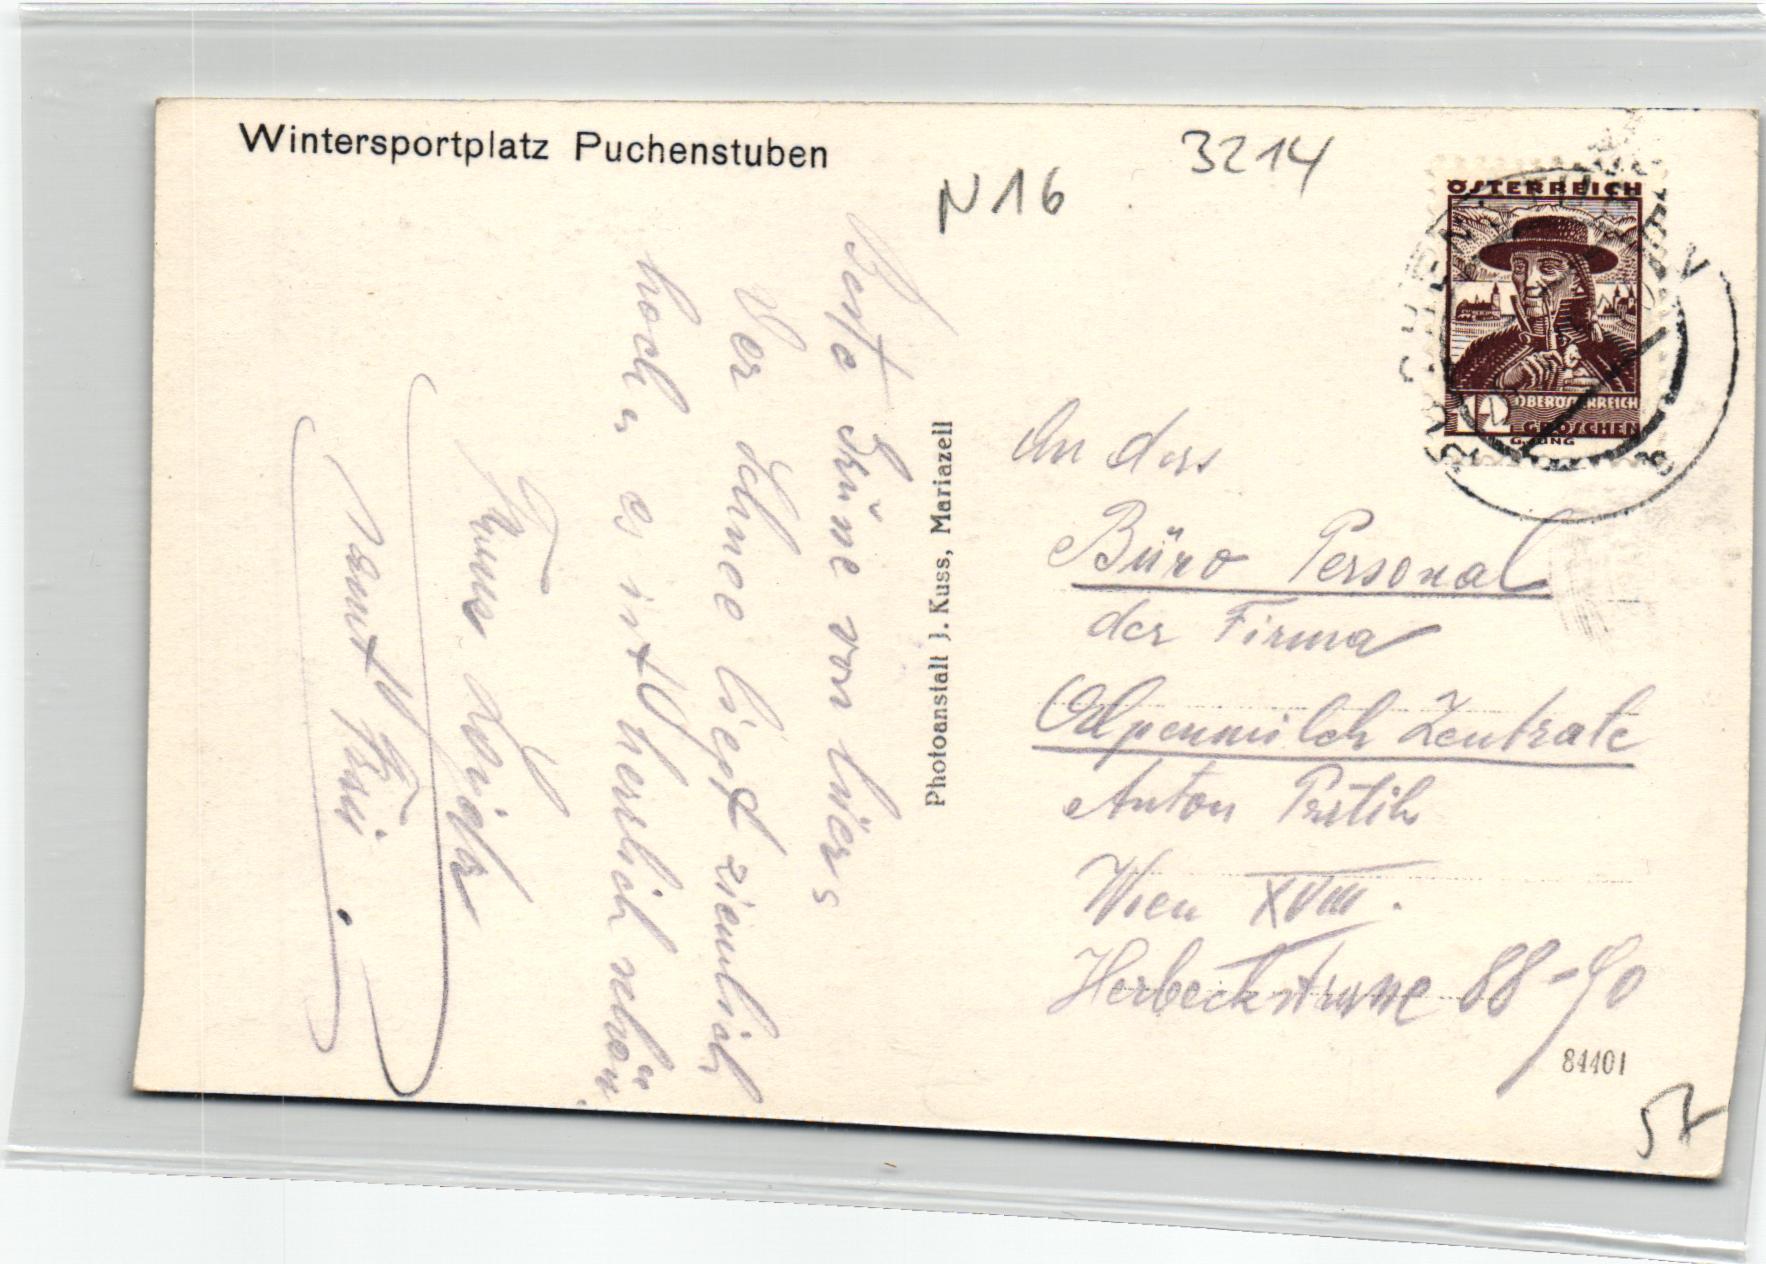 Wintersportplatz Puchenstuben
N 16
3214
ÖSTERREICH
OBERÖSTERREICH
GROSCHEN
G. JUNG
Beste Grüsse von hier
Der Schnee liegt ziemlich
hoch u es ist herrlich schön.
samt
Photoanstalt J. Kuss, Mariazell
An das
Büro Personal
der Firma
Alpenmilch Zentrale
Anton
Wien XVIII.
Herbeckstrasse 88-90
84401